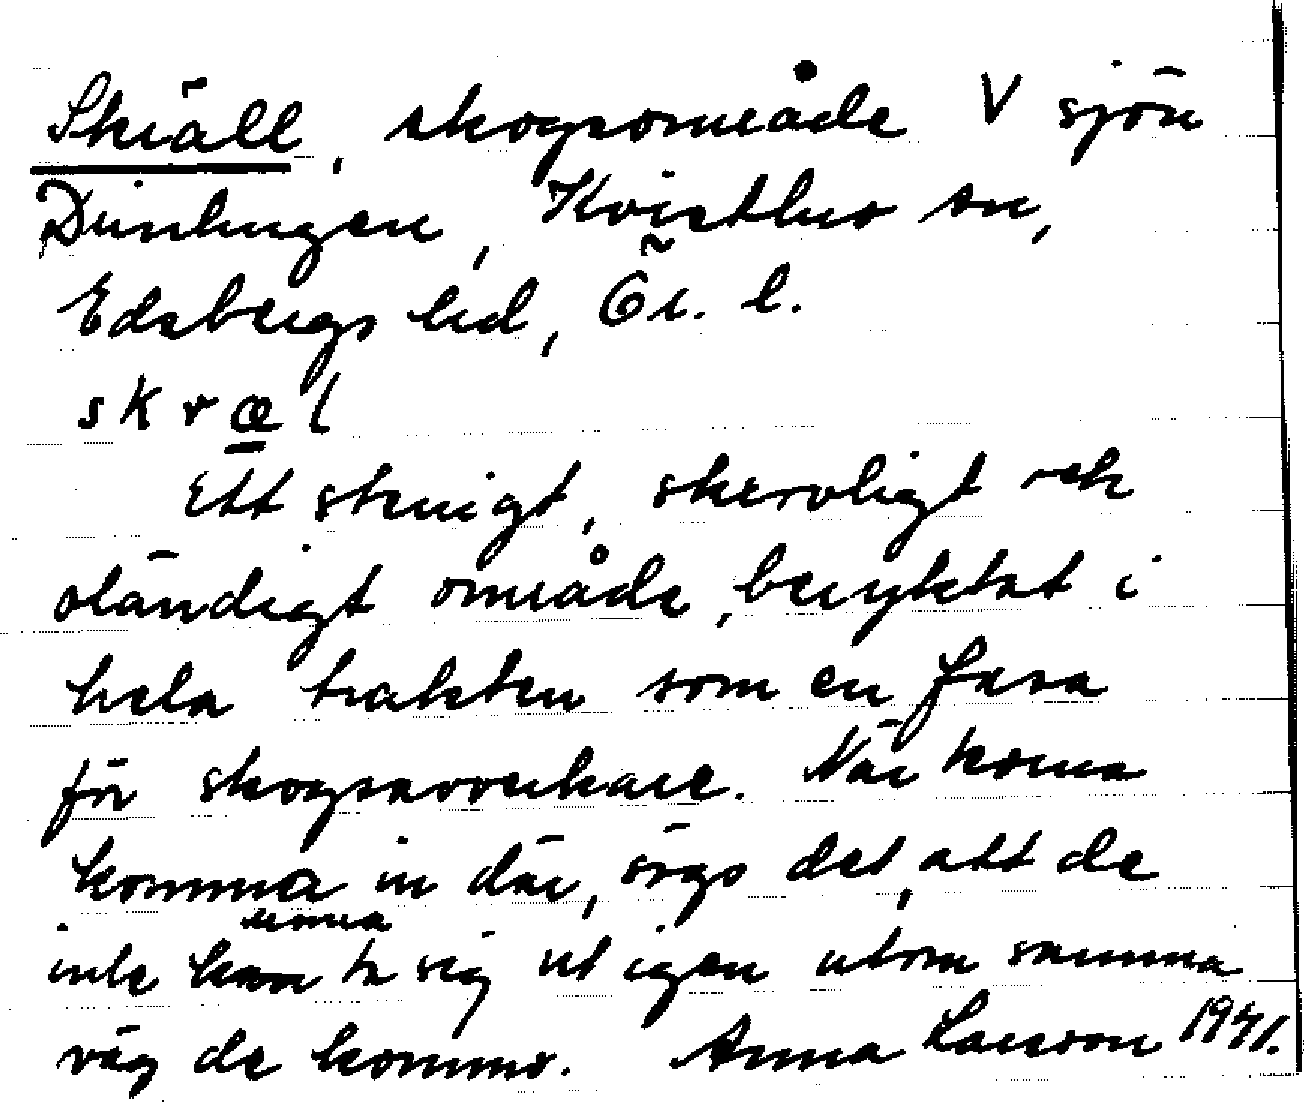 Skräll, skogsområde V sjön
Dunlungen, Kvisthus sn,
Edsbergs hd, Ör. l.
skræl
Ett stenigt, skervligt och
oländigt område, beryktat i
hela trakten som en fasa
för skogsavverkare. När korna
komma in där, sägs det, att de
inte kunna ta sig ut igen utom samma
väg de kommo. Anna Larsson 1941.